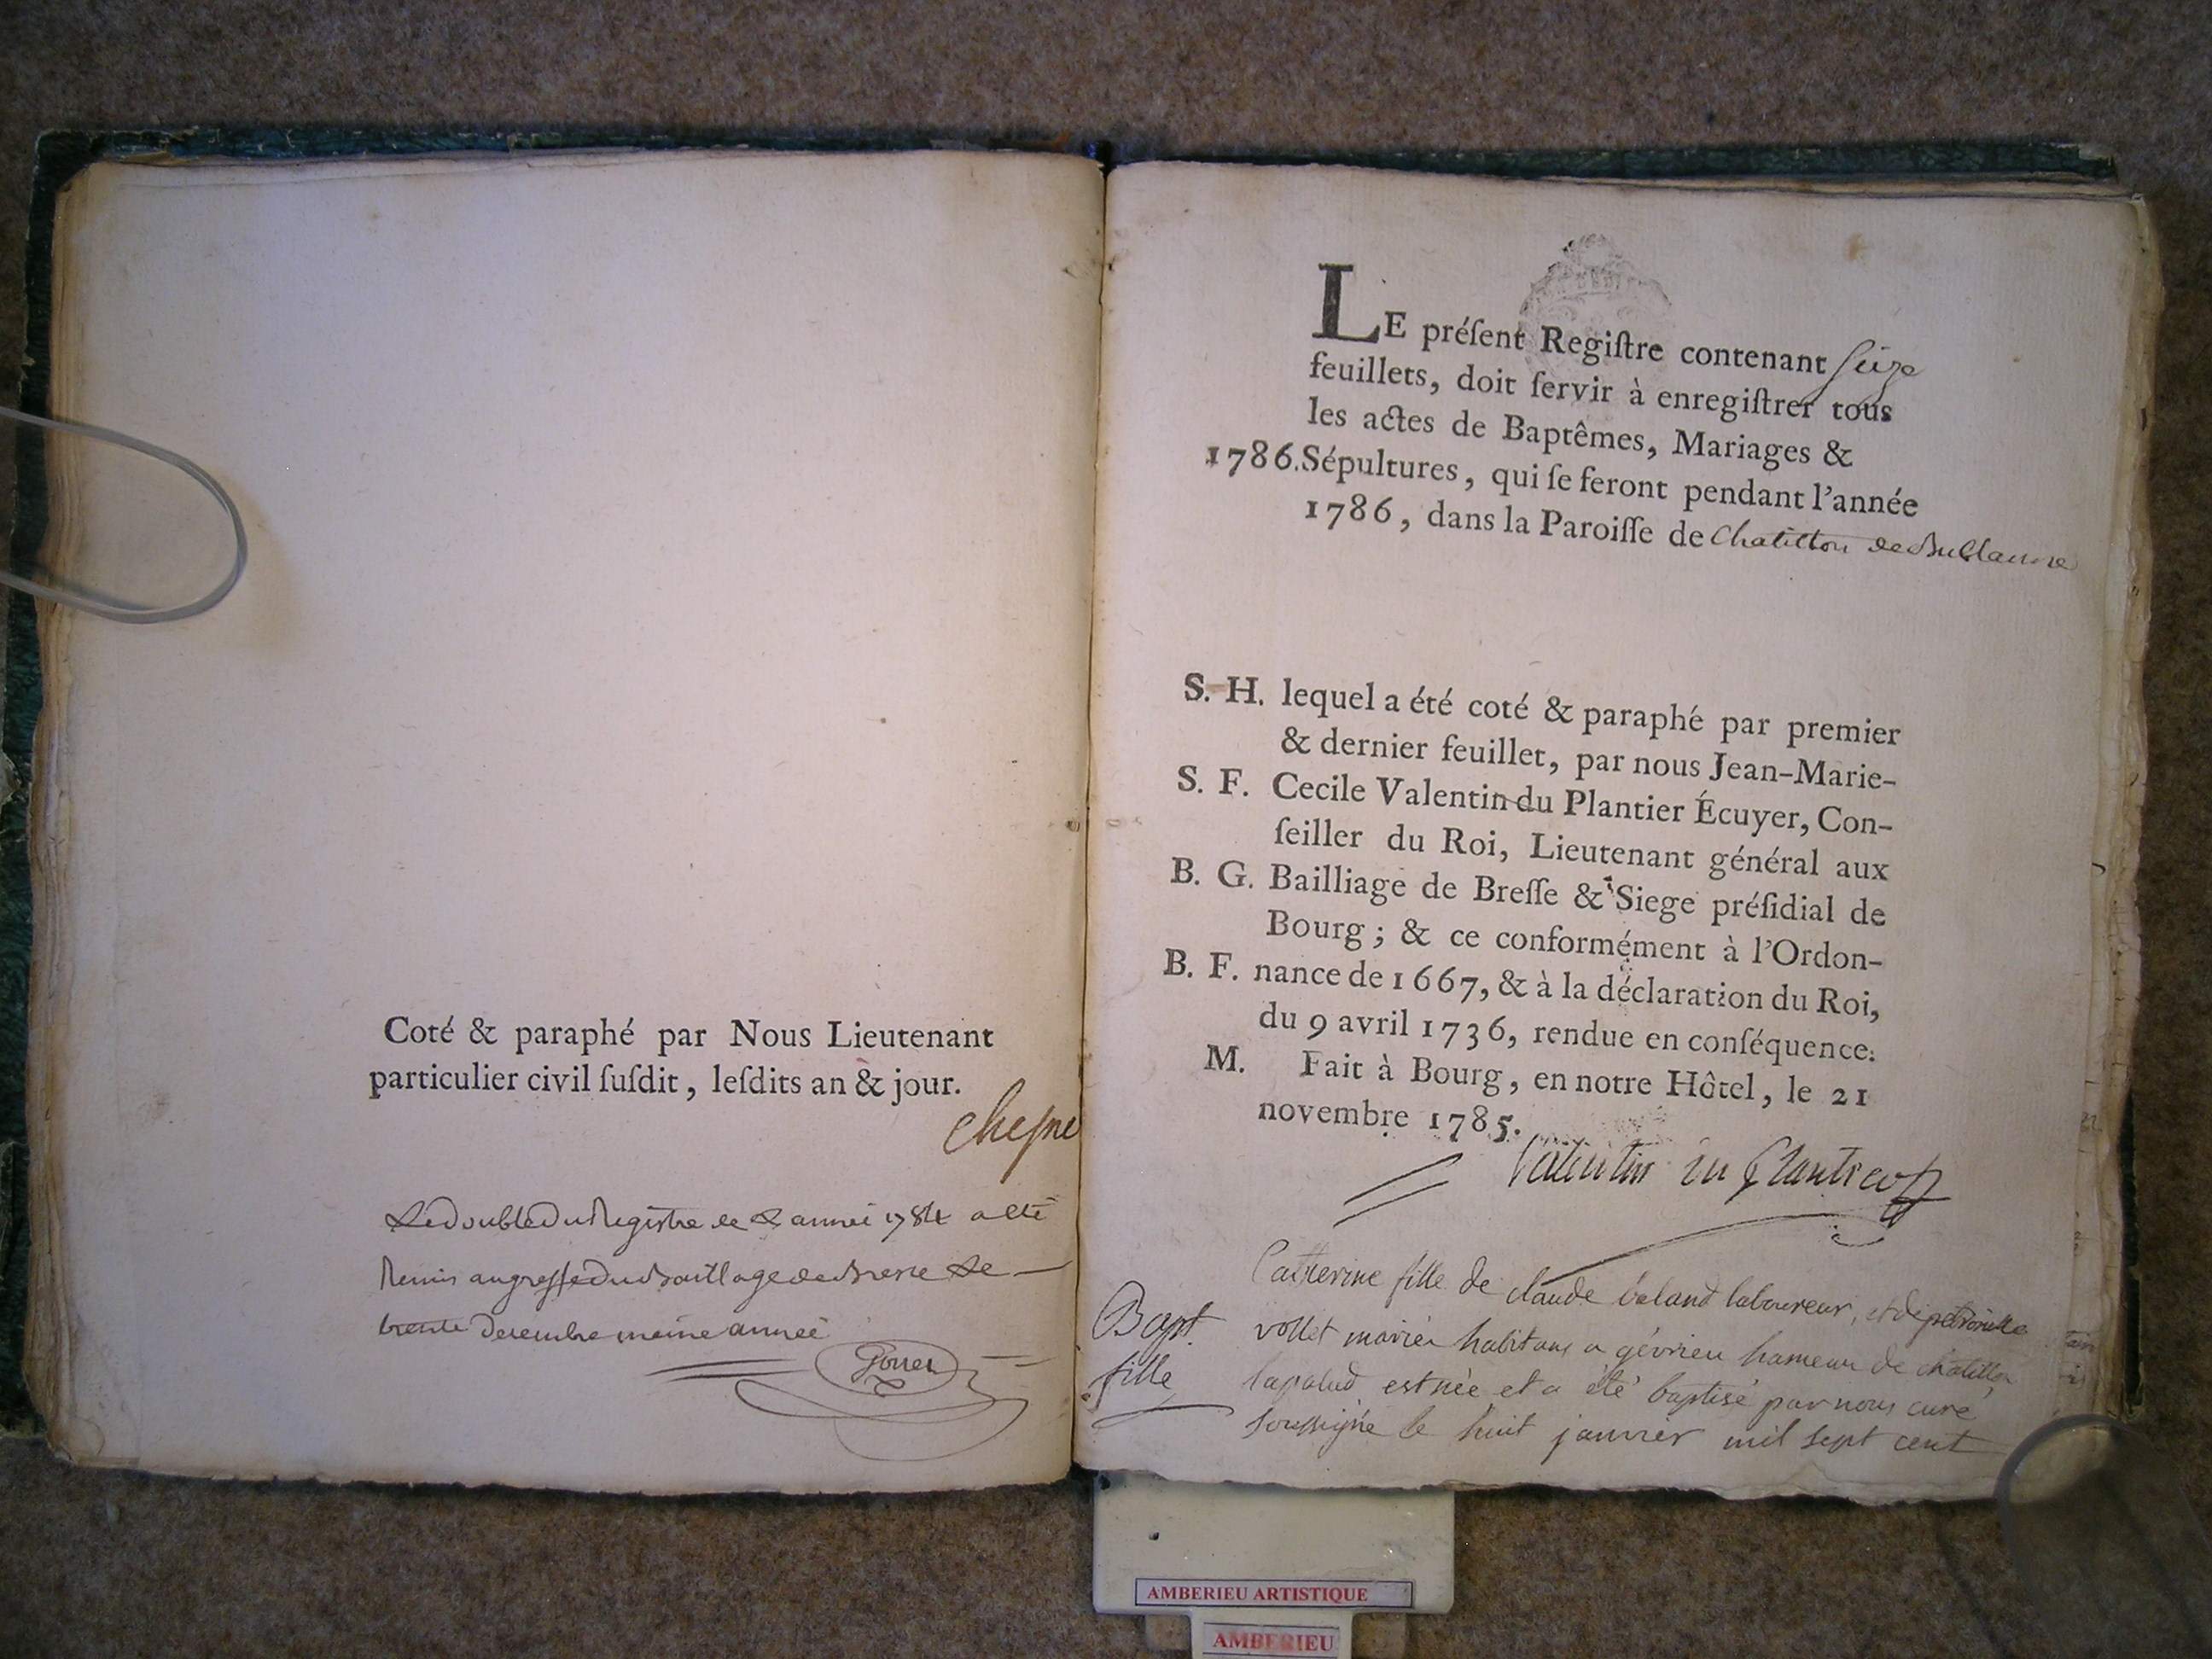 Coté & paraphé par Nous Lieutenant
particulier civil ſuſdit, leſdits an & jour.
cheſne
Le double du Registre de L année 1784 a été
Remis au greffe du Baillage de Bresse Le
trente Decembre meme année
LE préſent Regiſtre contenant Seize
feuillets, doit ſervir à enregiſtrer tous
les actes de Baptêmes, Mariages &
1786. Sépultures, qui ſe feront pendant l'année
1786, dans la Paroiſſe de Chatillon de
S. H. lequel a été coté & paraphé par premier
& dernier feuillet, par nous Jean-Marie-
S. F. Cecile Valentin du Plantier Écuyer, Con-
ſeiller du Roi, Lieutenant général aux
B. G. Bailliage de Breſſe & Siege préſidial de
Bourg ; & ce conformément à l'Ordon-
B. F. nance de 1667, & à la déclaration du Roi,
du 9 avril 1736, rendue en conſéquence.
M. Fait à Bourg, en notre Hôtel, le 21
novembre 1785.
Valentin du Plantier
Catherine fille de claude laboureur, et de petronille
Bapt. vollet mariés habitans a gévrieu hameau de chatillon
fille lapalud est née et a été baptisé par nous curé
soussigné le huit janvier mil sept cent
AMBERIEU ARTISTIQUE
AMBERIEU